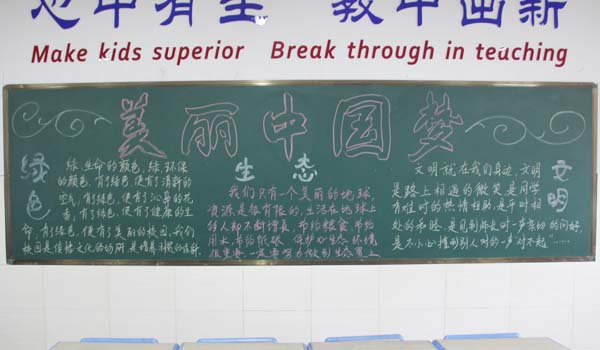 教中出新
Make kids superior Break through in teaching
美丽中国梦
绿色
绿,生命的颜色,绿,环保
的颜色,有了绿色,便有了清新的
空气,有了绿色,便有了沁鼻的花
香,有了绿色,便有了健康的生
命,有了绿色,便有了美丽的校园,我们
校园是传播文化的场所
生态
我们只有一个美丽的地球,
资源是很有限的,生活在地球上
的人却不断增长,节约粮食,节约
用水,节约纸张,保护好生态环境
很重要,一定要努力做到生态
文明
文明就在我们身边,文明
是路上相遇的微笑,是同学
有难时的热情相助,是平时相
处的,是见到师长时一声亲切的问好,
是不小心撞到别人时的一声对不起……